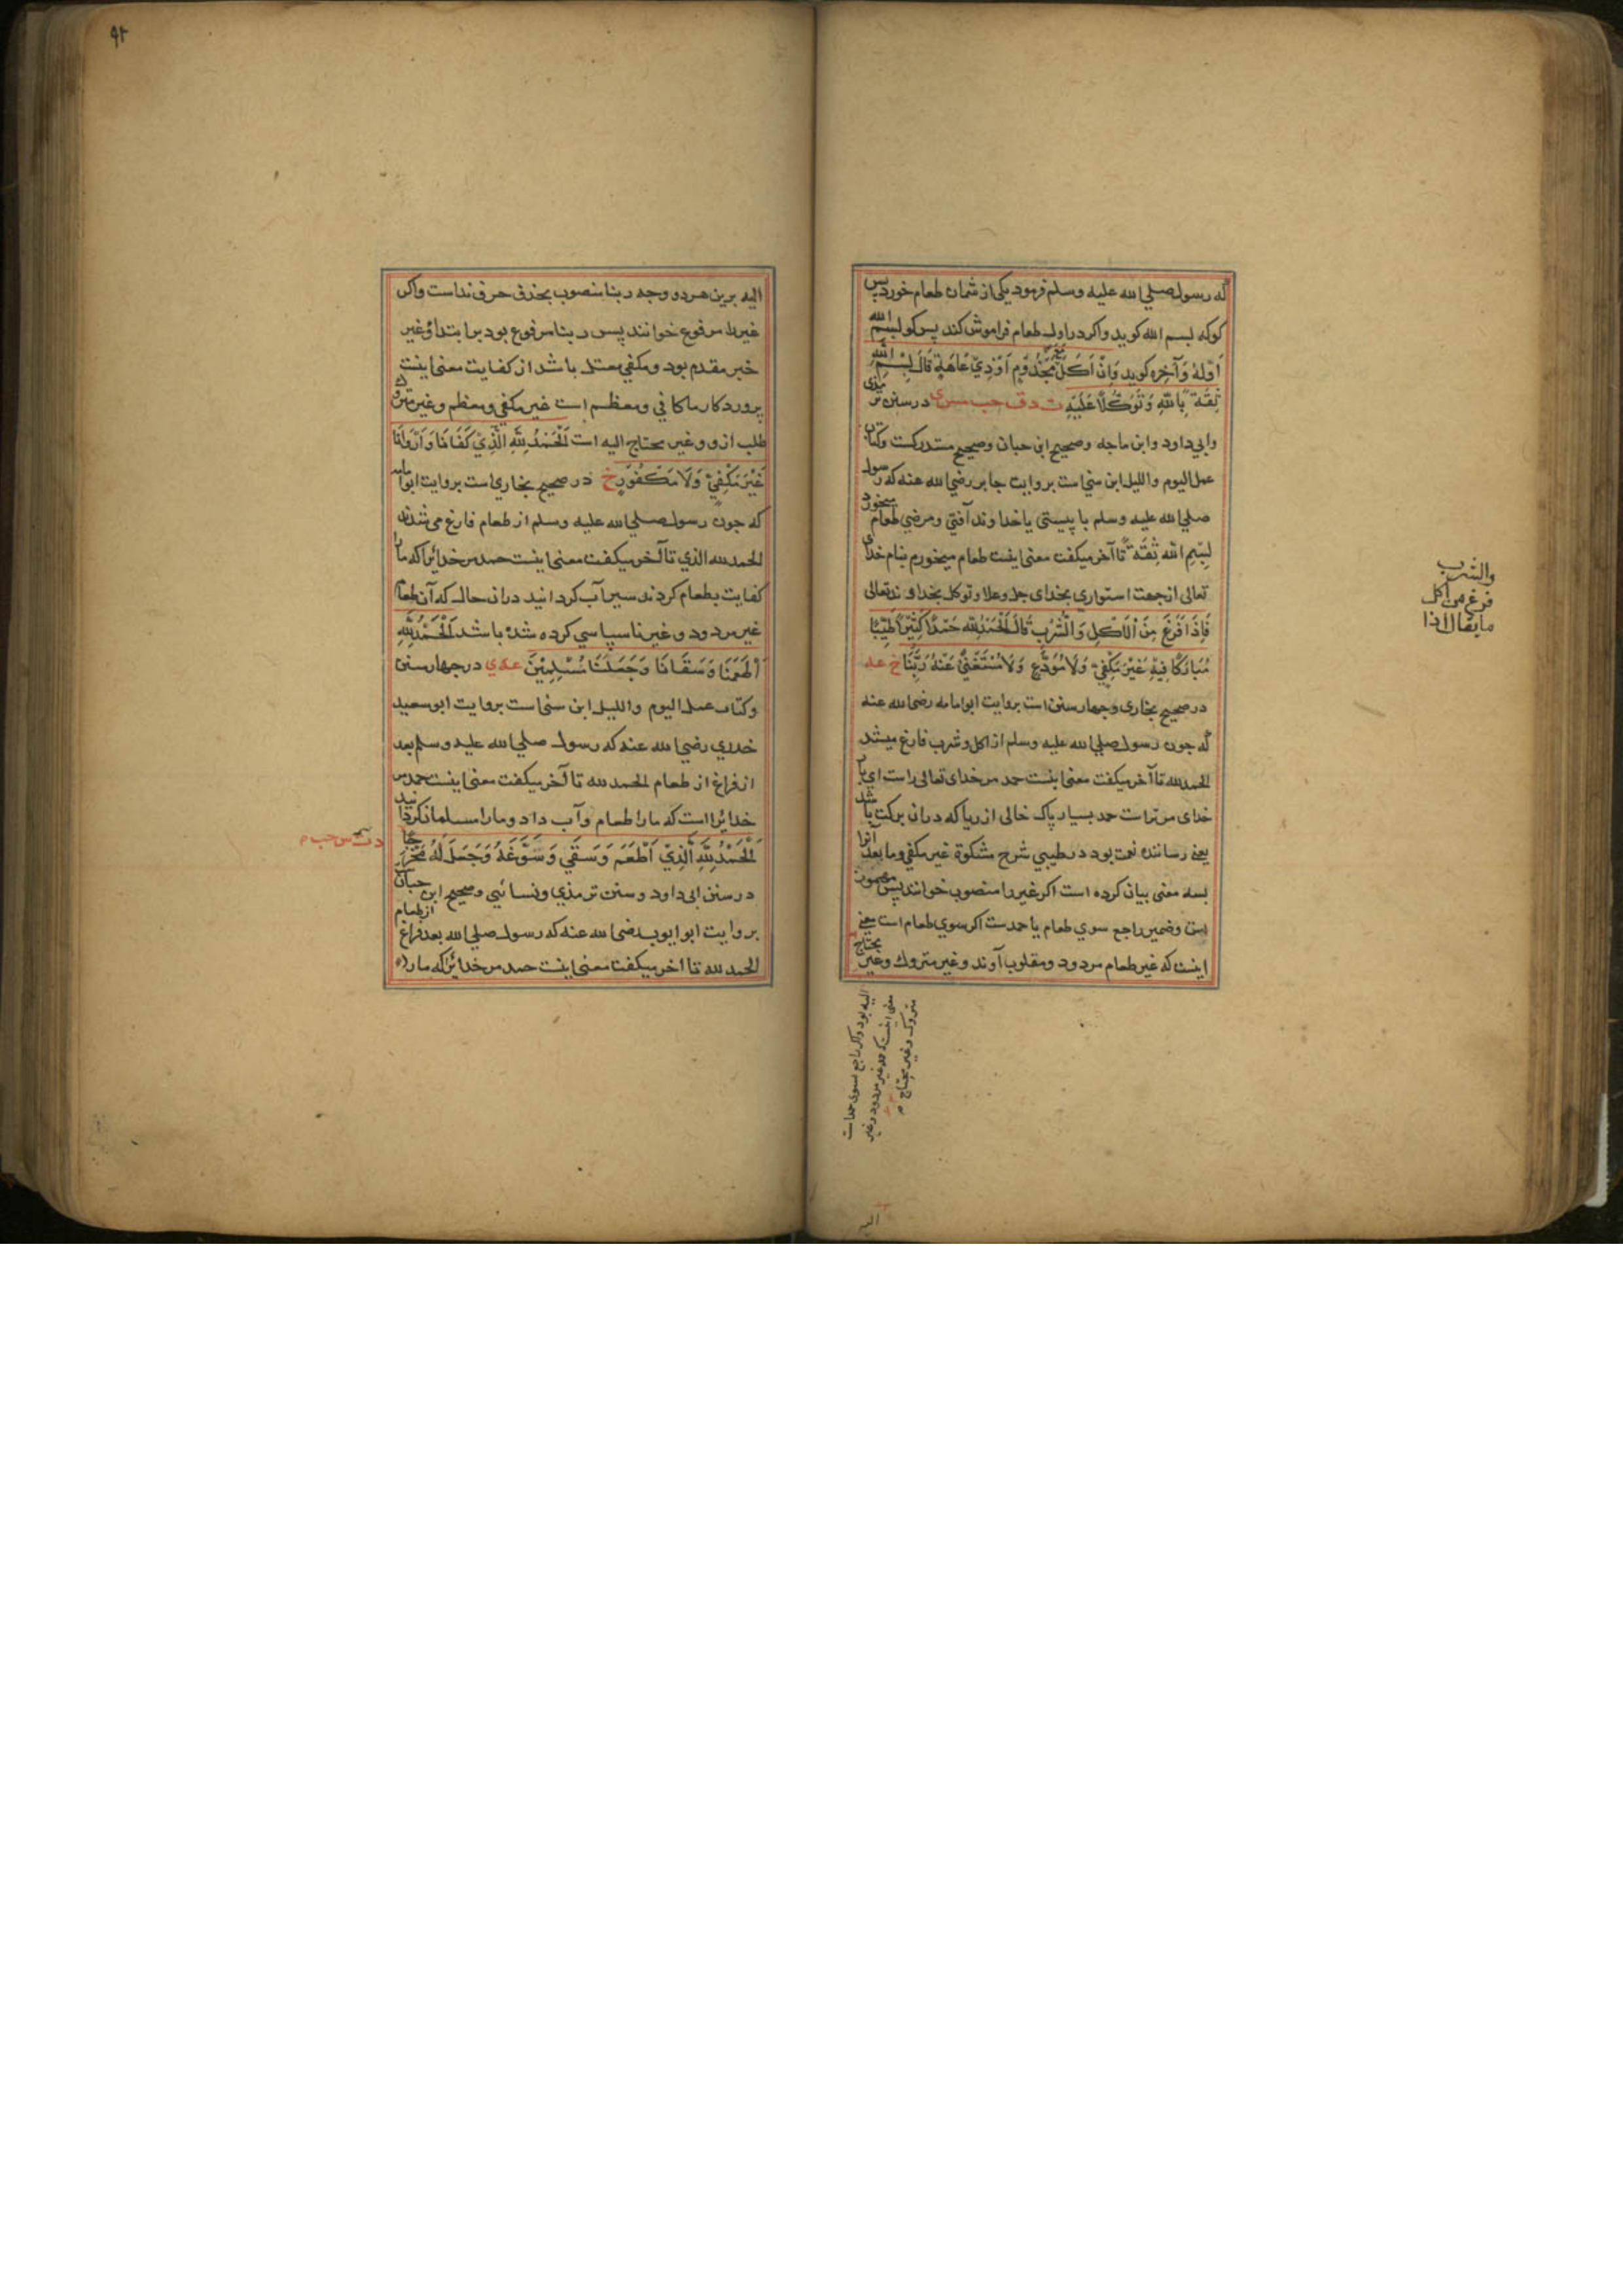 که رسول صلی الله علیه وسلم فرمود یکی از شمان طعام خورد پس
کوکه بسم الله کوید واکر در اول طعام فراموش کند پس کو بسم الله
اَوَّلَهُ وَآخِرَه کوید وَاِنْ اَکَلَ مَعَ مَجْذُوْمٍ اَوْ ذِیْ عَاهَةٍ قَالَ بِسْمِ اللّٰهِ
ثِقَةً بِاللّٰهِ وَتَوَکُّلًا عَلَیْهِ ت د ق حب مس ی در سنن ترمذی
وابی داود وابن ماجه وصحیح ابن حبان وصحیح مستدرکست وکتاب
عمل الیوم واللیل ابن سنی است بروایت جابر رضی الله عنه که رسول
صلی الله علیه وسلم با پیستی یا خداوند آفتی ومرضی طعام میخورد
بِسْمِ اللّٰه ثِقَةً تا آخر میکفت معنی اینست طعام میخورم بنام خدای
تعالی از جهت استواری بخدای جل وعلا وتوکل بخداوند تعالی
فَاِذَا فَرَغَ مِنَ الْاَکْلِ وَالْشُرْبِ قَالَ اَلْحَمْدُ لِلّٰه حَمْدًا کَثِیْرًا طَیِّبًا
مُبَارَکًا فِیْهِ غَیْرَ مَکْفِیٍّ وَلَا مُوَدَّعٍ وَلَا مُسْتَغْنًی عَنْهُ رَبَّنَا خ عه
در صحیح بخاری وچهار سنن است بروایت ابو امامه رضی الله عنه
که چون رسول صلی الله علیه وسلم از اکل وشرب فارغ میشد
الحمد لله تا آخر میکفت معنی اینست حمد مر خدای تعالی راست ای بار
خدای مر تراست حمد بسیار پاک خالی از ریا که دران برکت باشد
یعنی رساننده نعمت بود در طیبی شرح مشکوة غیر مکفی وما بعد آنرا
بسه معنی بیان کرده است اکر غیر را منصوب خوانند پس
است وضمیر راجع سوی طعام یا حمدست اکر سوی طعام است معنی
اینست که غیر طعام مردود ومقلوب آوند وغیر متروک وغیر محتاج
الیه بود واکر راجع بسوی حمد است
معنی اینست که حمد غیر مردود وغیر
متروک وغیر محتاج
الیه
والشرب
فرغ من اکل
ما یقال اذا
۹۲
الیه برین هردو وجه ربنا منصوب بحذف حرف نداست واکر
غیر را مرفوع خوانند پس ربنا مرفوع بود بر ابتدا وغیر
خبر مقدم بود ومکفی معتل باشد از کفایت معنی اینست
پروردکار ما کافی ومعظم است غیر مکفی ومعظم وغیر متروک
طلب ازو وغیر محتاج الیه است اَلْحَمْدُ لِلّٰهِ الَّذِیْ کَفَانَا وَاَرْوَانَا
غَیْرَ مَکْفِیٍّ وَلَا مَکْفُوْرٍ خ در صحیح بخاری است بروایت ابو امامه
که چون رسول صلی الله علیه وسلم از طعام فارغ می شدند
الحمد لله الذی تا آخر میکفت معنی اینست حمد مر خدائرا که مارا
کفایت بطعام کردند سیرآب کردانید دران حال که آن طعام
غیر مردود وغیر ناسپاسی کرده شده باشد اَلْحَمْدُ لِلّٰهِ
اَطْعَمَنَا وَسَقَانَا وَجَعَلَنَا مُسْلِمِیْنَ عه ی در چهار سنن
وکتاب عمل الیوم واللیل ابن سنی است بروایت ابو سعید
خدری رضی الله عنه که رسول صلی الله علیه وسلم بعد
از فراغ از طعام الحمد لله تا آخر میکفت معنی اینست حمد مر
خدائرا است که مارا طعام وآب داد ومارا مسلمان کردانید
اَلْحَمْدُ لِلّٰهِ الَّذِیْ اَطْعَمَ وَسَقٰی وَسَوَّغَهُ وَجَعَلَ لَهُ مَخْرَجًا
د ت س حب
در سنن ابی داود وسنن ترمذی ونسائی وصحیح ابن حبان
بروایت ابو ایوب رضی الله عنه که رسول صلی الله بعد فراغ از طعام
الحمد لله تا اخر میکفت معنی اینست حمد مر خدائرا که مارا